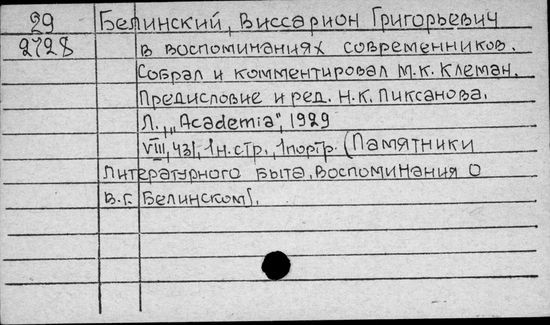 29 Белинский, Виссарион Григорьевич
2728 в воспоминаниях современников.
Собрал и комментировал М.К. Клеман.
Предисловие и ред. Н.К. Пиксанова.
Л., „Academia", 1929
VIII, 431, 1 н.стр., 1 портр. (Памятники
литературного быта. Воспоминания о
В.Г. Белинском).